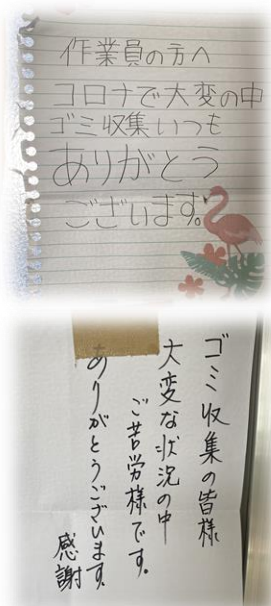 作業員の方へ
コロナで大変の中
ゴミ収集いつも
ありがとう
ございます。
ゴミ収集の皆様
大変な状況の中
ご苦労様です。
ありがとうございます。
感謝